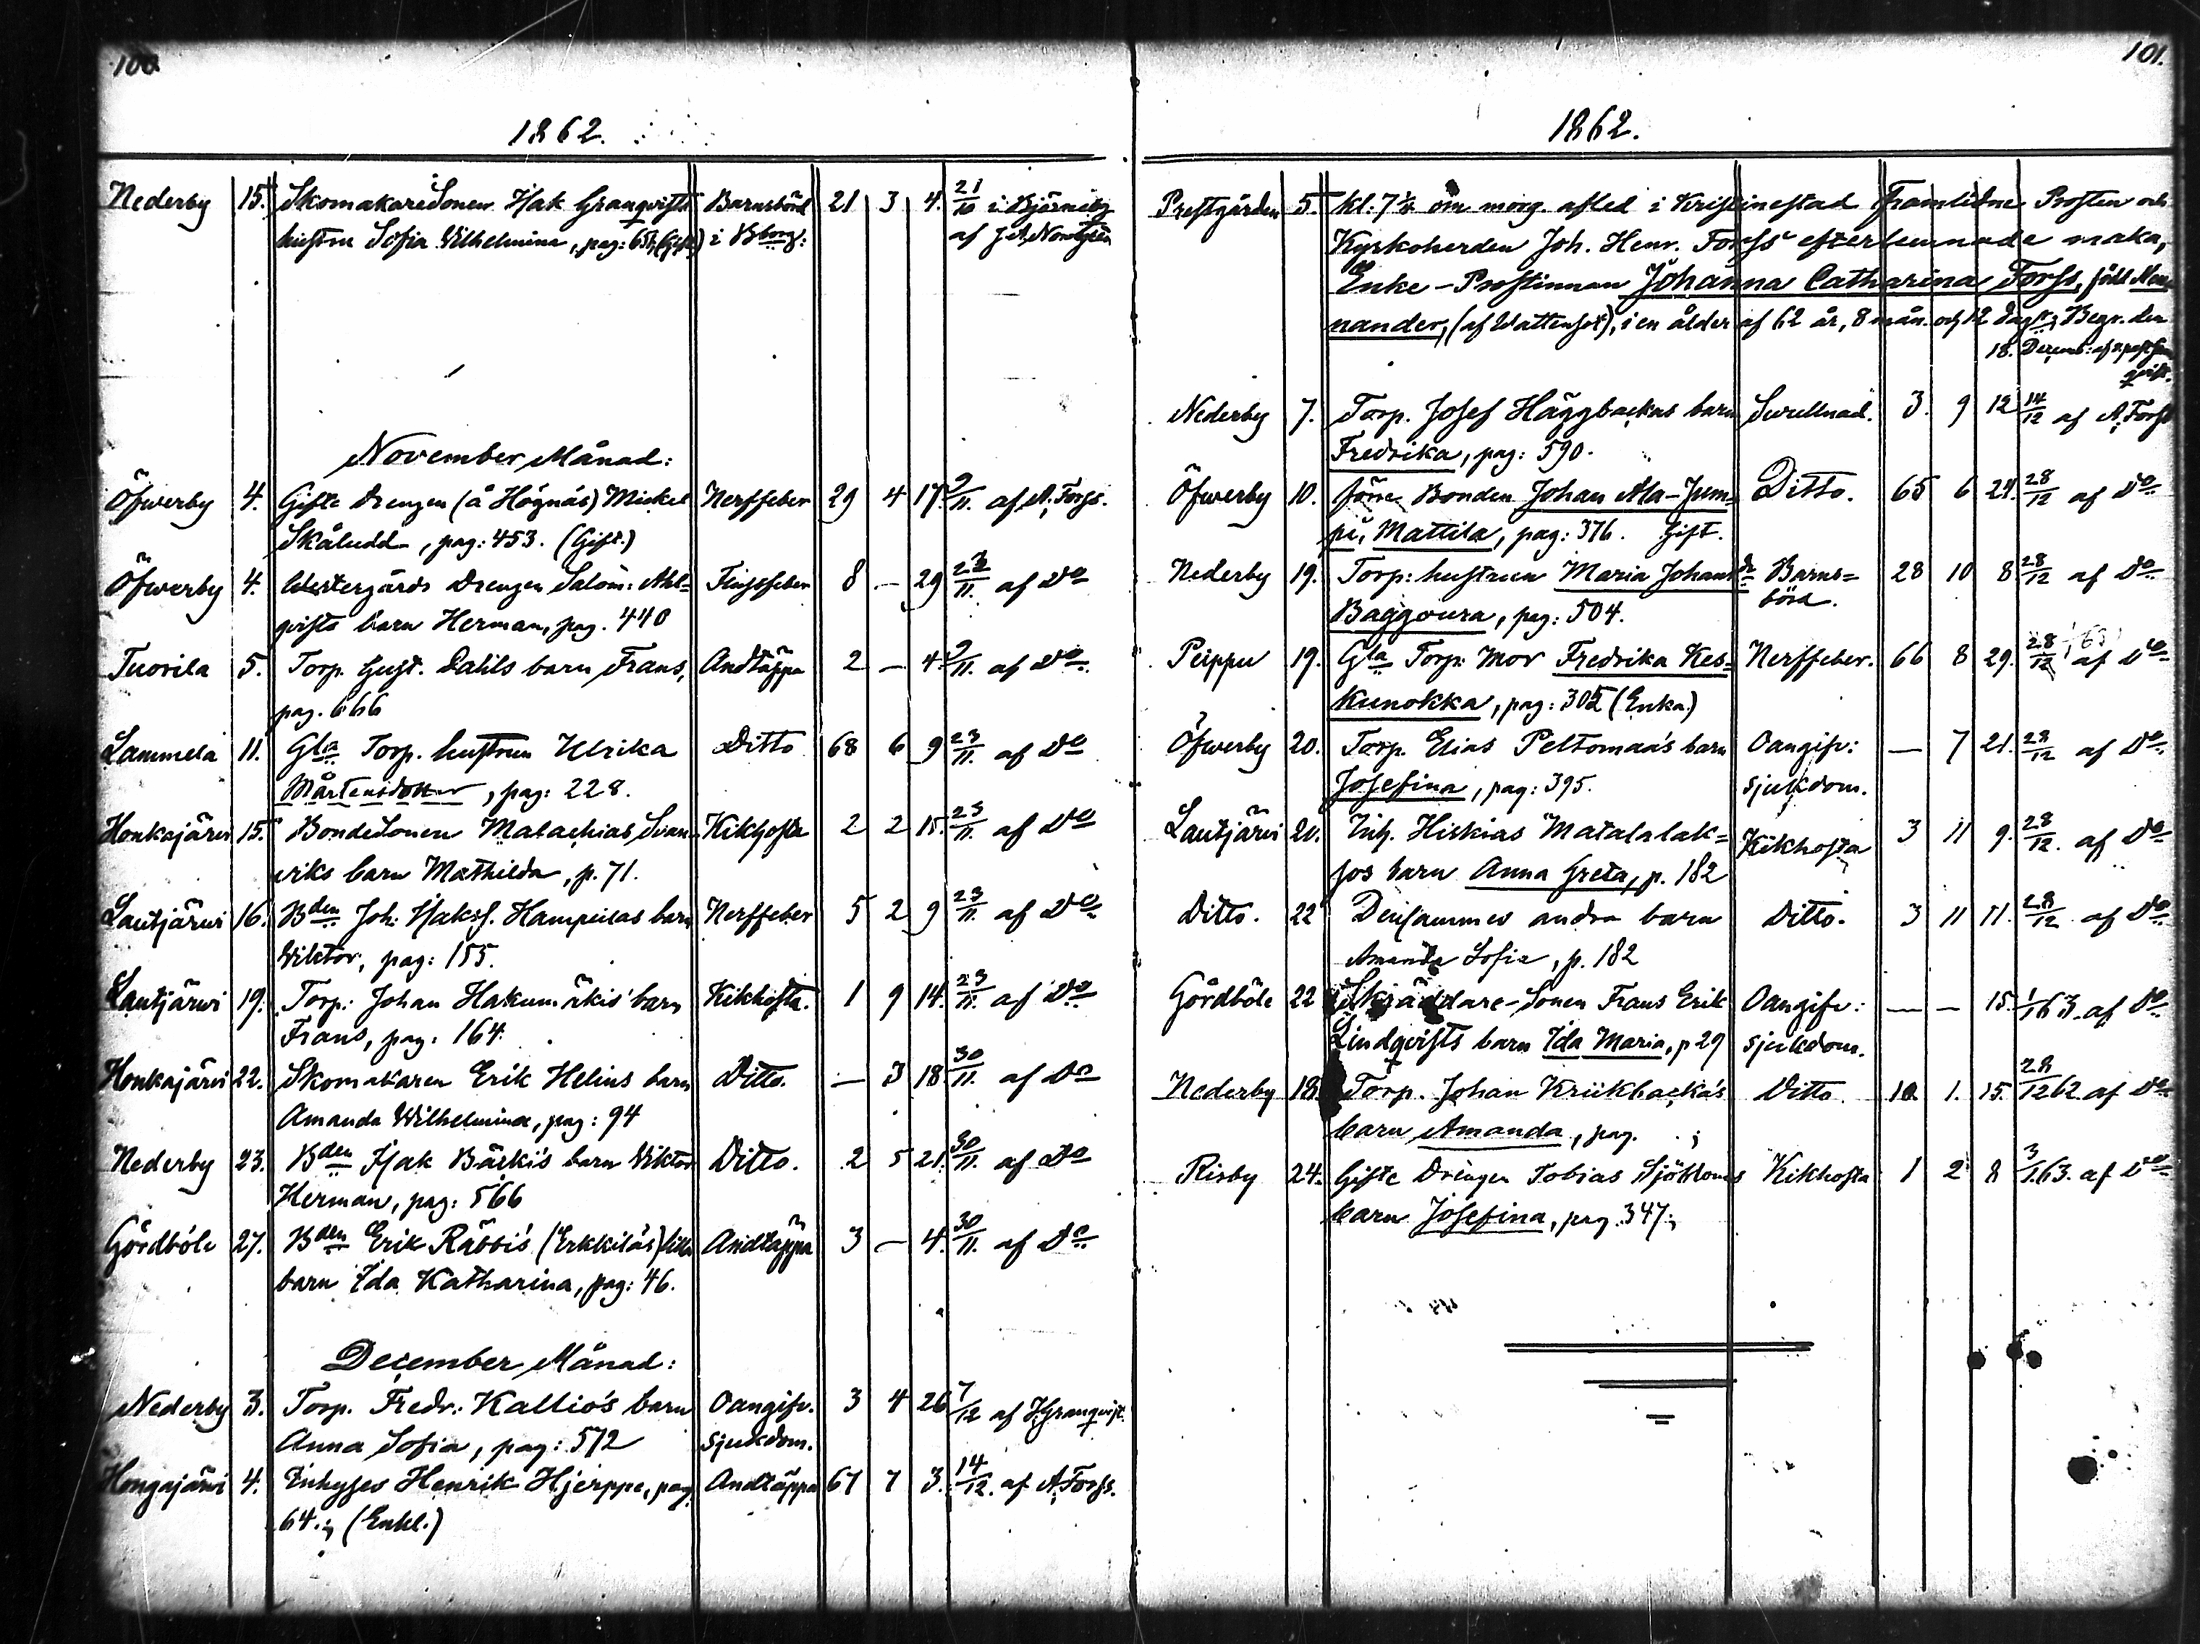 100
1862.
Nederby 15. Skomakaresonen Isak Granqvists Barnsbörd 21 3 4. 21/10 i Björneby
hustru Sofia Wilhelmina, pag: (Gift) i Bborg: af
November Månad:
Öfwerby 4. Gifte Drengen (å Högnäs) Mickel Nerffeber 29 4 17. 9/11. af A. Forss.
Skåludd, pag: 453. (Gift.)
Öfwerby 4. Westergårds Drengen Salom: Ahl= 8 — 29 23/11. af Do
qvists barn Herman, pag. 440
Tuorila 5. Torp. Gust. Dahls barn Frans, Andtäppa 2 — 4. 9/11. af Do
pag. 666
Lammela 11. Gla Torp. hustrun Ulrika Ditto 68 6 9 23/11. af Do
Mårtensdotter, pag: 228.
Honkajärvi 15. Bondesonen Malachias Svan- Kikhosta 2 2 15. 23/11. af Do
viks barn Mathilda, p. 71.
Lautjärwi 16. Bden Joh: Isakss. Hampuilas barn Nerffeber 5 2 9 23/11. af Do
Viktor, pag: 155.
Lautjärwi 19. Torp: Johan Hakumäkis barn Kikhosta. 1 9 14. 23/11. af Do
Frans, pag: 164.
Honkajärvi 22. Skomakaren Erik Helins barn Ditto. — 3 18 30/11. af Do
Amanda Wilhelmina, pag: 94
Nederby 23. Bden Isak Bäckis barn Viktor Ditto. 2 5 21. 30/11. af Do
Herman, pag: 566
Gördböle 27. Bden Erik Räbbis (Erkkiläs) lilla Andtäppa 3 — 4. 30/11. af Do
barn Ida Katharina, pag: 46.
December Månad:
Nederby 3. Torp. Fredr: Kallio's barn Oangifv. 3 4 26 7/12 af J. Granqvist.
Anna Sofia, pag: 572 sjukdom.
Hongajärvi 4. Inhyses Henrik Hjerppe, pag. Andtäppa 67 7 3. 14/12. af A. Forss.
64.; (Enkl.)
101.
1862.
Prestgården 5. kl: 7½ om morg. afled i Kristinestad Framlidne Prosten och
Kyrkoherden Joh. Henr. Forss' efterlemnade maka,
Enke-Prostinnan Johanna Catharina Forss, född Nen-
nander, (af Wattensot), i en ålder af 62 år, 8 mån. och 12 dagr; Begr. den
18. Decemb: af
Nederby 7. Torp. Josef Häggbackas barn Swullnad. 3. 9 12 14/12 af A. Forss
Fredrika, pag: 590.
Öfwerby 10. Förre Bonden Johan Ala-Jum- Ditto. 65 6 24. 28/12 af Do
pi, Mattila, pag: 376. Gift.
Nederby 19. Torp: hustrun Maria Johansdr Barns= 28 10 8 28/12 af Do
Baggoura, pag: 504. börd.
Peippu 19. Gla Torp: Mor Fredrika Kes= Nerffeber. 66 8 29. 28/12 af Do
kunokka, pag: 302 (Enka.)
Öfwerby 20. Torp. Elias Peltomaa's barn Oangifv: — 7 21. 28/12 af Do
Josefina, pag: 395. sjukdom.
Lautjärvi 20. Inh. Hiskias Matalalak= Kikhosta 3 11 9. 28/12. af Do
sos barn Anna Greta, p. 182
Ditto. 22 Densammes andra barn Ditto. 3 11 11. 28/12 af Do
Amanda Sofia, p. 182
Gördböle 22 Skräddare-Sonen Frans Erik Oangifv: — — 15. 1/1 63. af Do
Lindqvists barn Ida Maria, p 29 sjukdom.
Nederby 18. Torp. Johan Kriikbacka's Ditto. 10 1. 15. 28/12 62. af Do
barn Amanda, pag. ;
Risby 24. Gifte Drengen Tobias Sjöbloms Kikhosta 1 2 8 3/1.63. af Do
barn Josefina, pag. 347.;